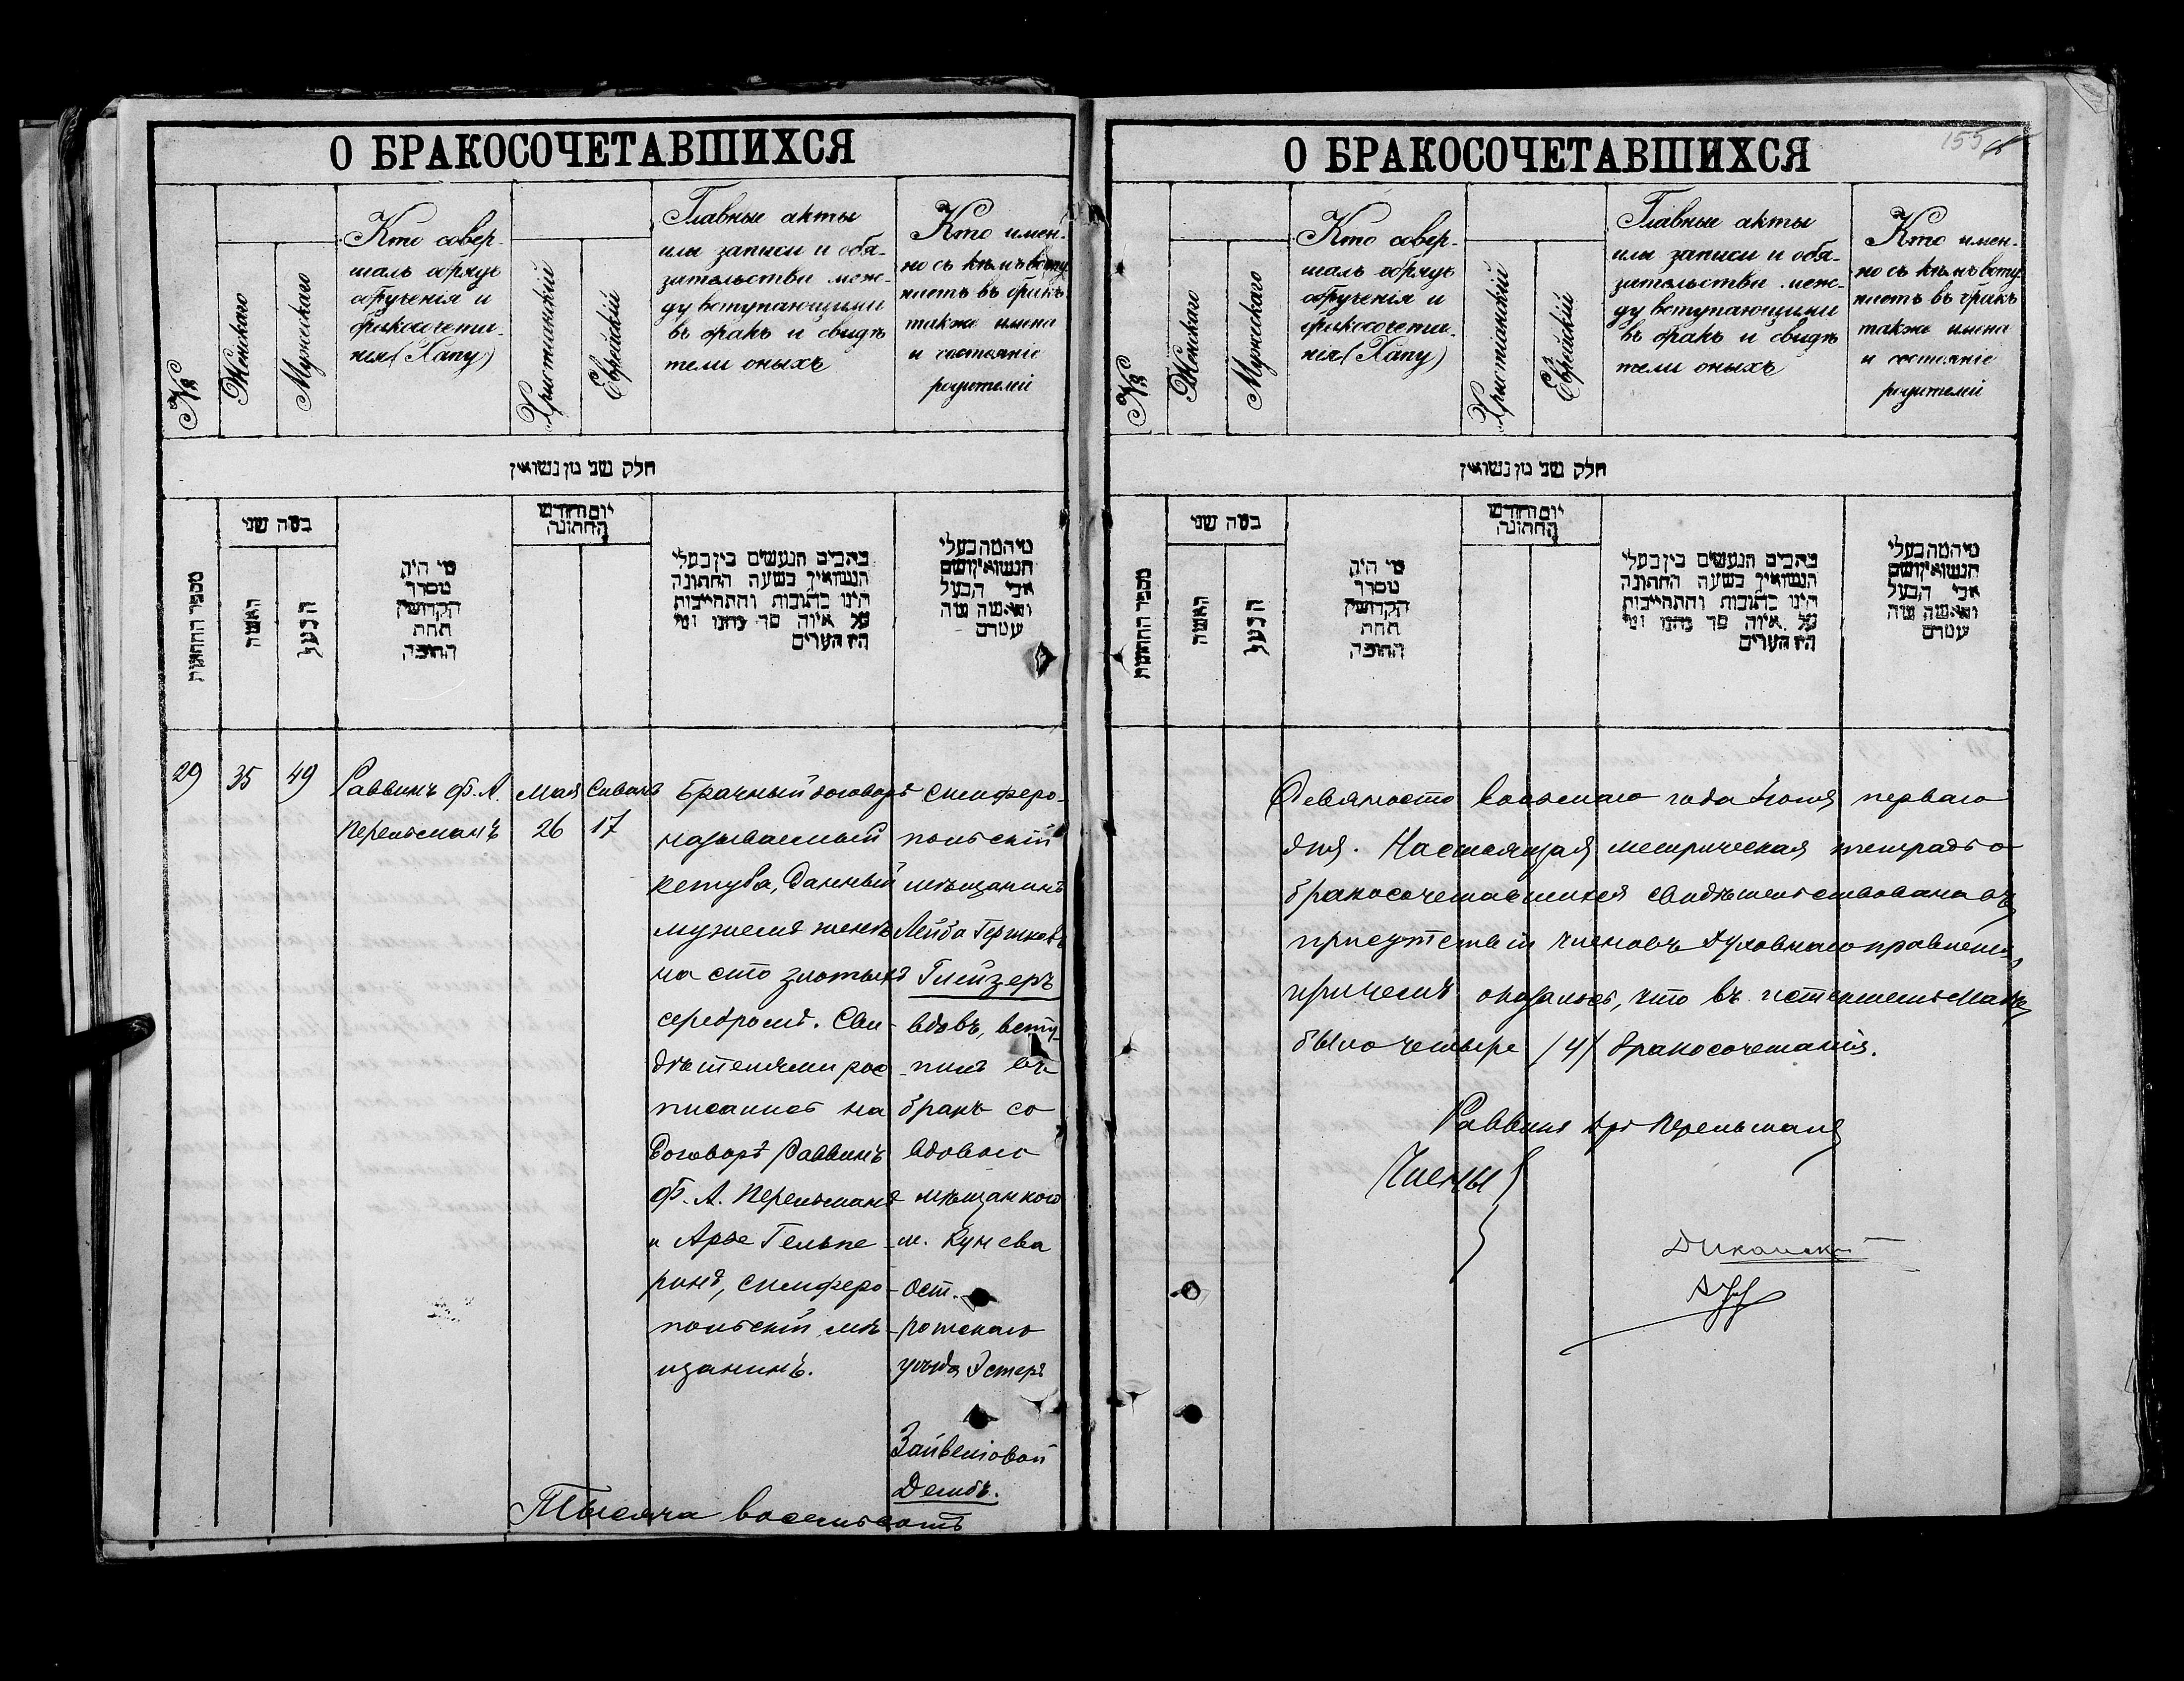 О БРАКОСОЧЕТАВШИХСЯ
№
Женскаго
Мужескаго
Кто совер-
шалъ обрядъ
обрученія и
бракосочета-
нія (Хапу)
Христіанскій
Еврейскій
Главные акты
или записи и обя-
зательства меж-
ду вступающими
въ бракъ и свидѣ
тели оныхъ
Кто имен-
но съ кѣмъ всту
паетъ въ бракъ
также имена
и состояніе
родителей
חלק שני מן נשואין
מספר החתונות
כמה שני
האשה
הבעל
מי היה
מסדר
הקדושין
תחת
החופה
יום וחודש
החתונה
כתבים הנעשים בין בעלי
הנשואין בשעה החתונה
היינו כתובות והתחייבות
על איזה סך נתנו ומי
היו העדים
מי המה בעלי
הנשואין ושם
אבי הבעל
והאשה ומה
עטרם
29
35
49
Раввинъ Ф. А.
Перельманъ
Мая
26
Сиванъ
17
Брачный договоръ
называемый
кетуба, данный
мужемъ женѣ
на сто злотыхъ
серебромъ. Сви-
дѣтелями рос-
писались на
договорѣ Раввинъ
Ф. А. Перельманъ
и Арье Гельпе-
ринъ, симферо-
польскій мѣ-
щанинъ.
Симферо-
польскій
мѣщанинъ
Лейба Гершковъ
Глейзеръ
вдовъ, всту-
пилъ въ
бракъ со
вдовою
мѣщанкою
м. Кунева
Ост-
рожскаго
уѣзда Эстеръ
Зайвеловой
Дембъ.
Тысяча восемьсотъ
О БРАКОСОЧЕТАВШИХСЯ
155
№
Женскаго
Мужескаго
Кто совер-
шалъ обрядъ
обрученія и
бракосочета-
нія (Хапу)
Христіанскій
Еврейскій
Главные акты
или записи и обя-
зательства меж-
ду вступающими
въ бракъ и свидѣ
тели оныхъ
Кто имен-
но съ кѣмъ всту
паетъ въ бракъ
также имена
и состояніе
родителей
חלק שני מן נשואין
מספר החתונות
כמה שני
האשה
הבעל
מי היה
מסדר
הקדושין
תחת
החופה
יום וחודש
החתונה
כתבים הנעשים בין בעלי
הנשואין בשעה החתונה
היינו כתובות והתחייבות
על איזה סך נתנו ומי
היו העדים
מי המה בעלי
הנשואין ושם
אבי הבעל
והאשה ומה
עטרם
Девяносто восьмаго года Іюня перваго
дня. Настоящая метрическая тетрадь о
бракосочетавшихся свидѣтельствована въ
присутствіи членовъ Духовнаго правленія,
причемъ оказалось, что въ истекшемъ Маѣ
было четыре /4/ бракосочетанія.
Раввинъ Др Перельманъ
Члены